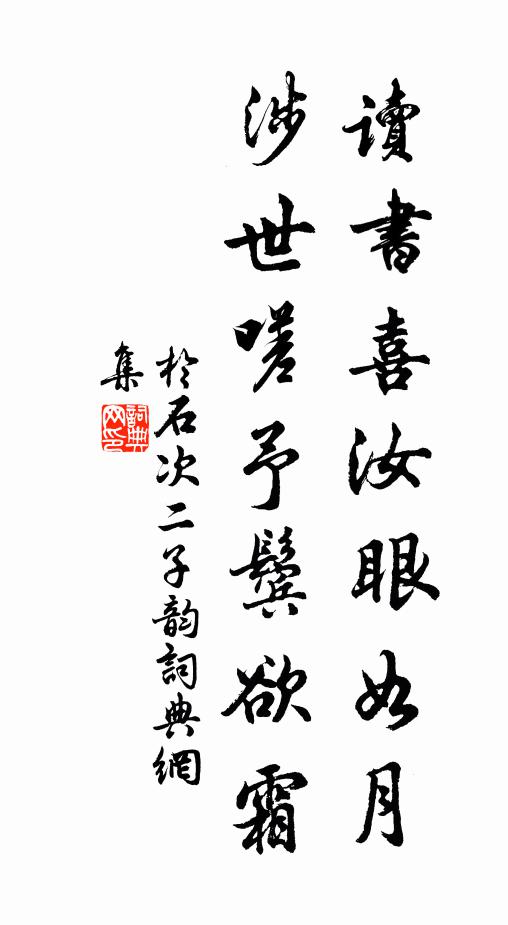 讀書喜汝眼如月
涉世嗟予鬢欲霜
於石次二子韵詞典網
集
詞典
网印